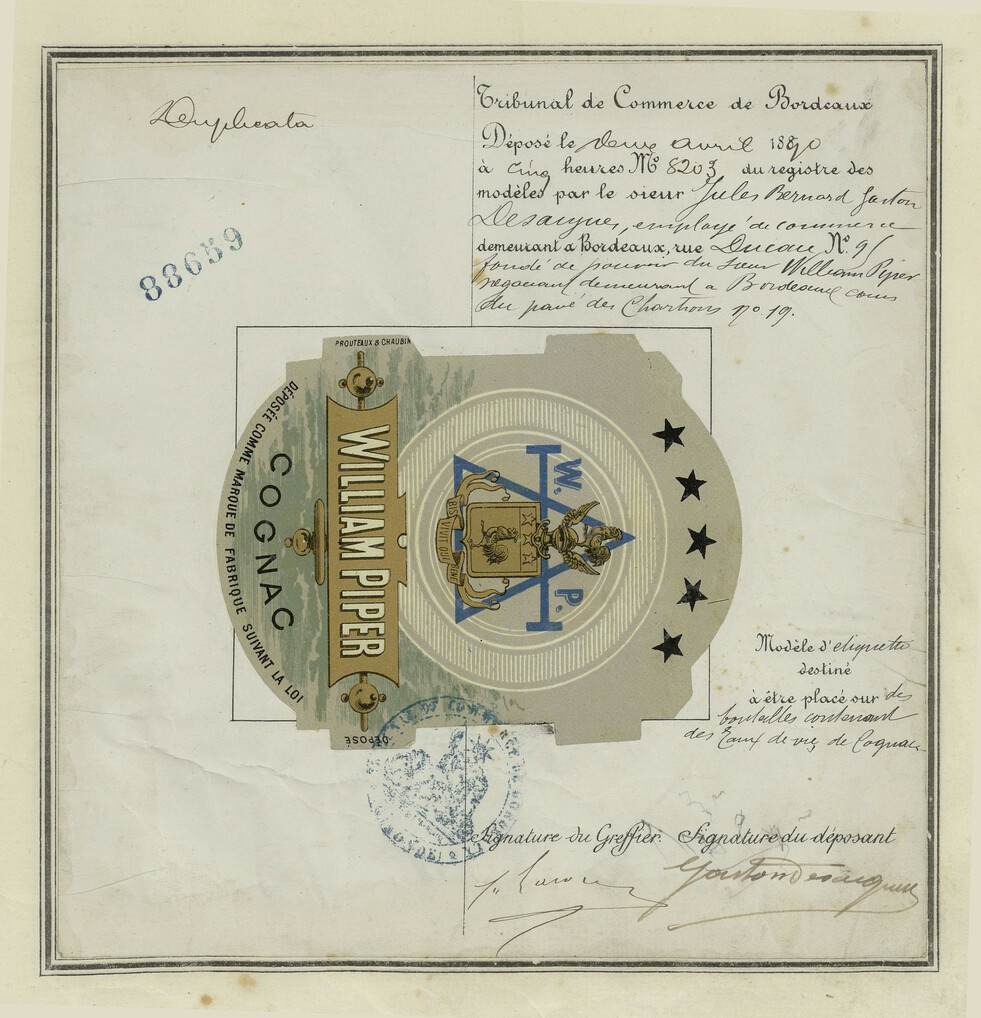 Duplicata
88659
Tribunal de Commerce de Bordeaux
Déposé le deux avril 1890
à cinq heures No 8203 du registre des
modèles par le sieur Jules Bernard Gaston
Desargues, employé de commerce
demeurant à Bordeaux, rue Ducau No.
fondé de pouvoir du sieur William Piper
négociant demeurant à Bordeaux cours
du pavé des Chartrons no 19.
PROUTEAUX & CHAUBIN
DÉPOSÉE COMME MARQUE DE FABRIQUE SUIVANT LA LOI
COGNAC
WILLIAM PIPER
W. P.
BIS VIVIT QUI BENE
DÉPOSÉ
Modèle d'etiquette
destiné
à être placé sur des
bouteilles contenant
des Eaux de vie de Cognac
Signature du Greffier. Signature du déposant
Gaston Desargues